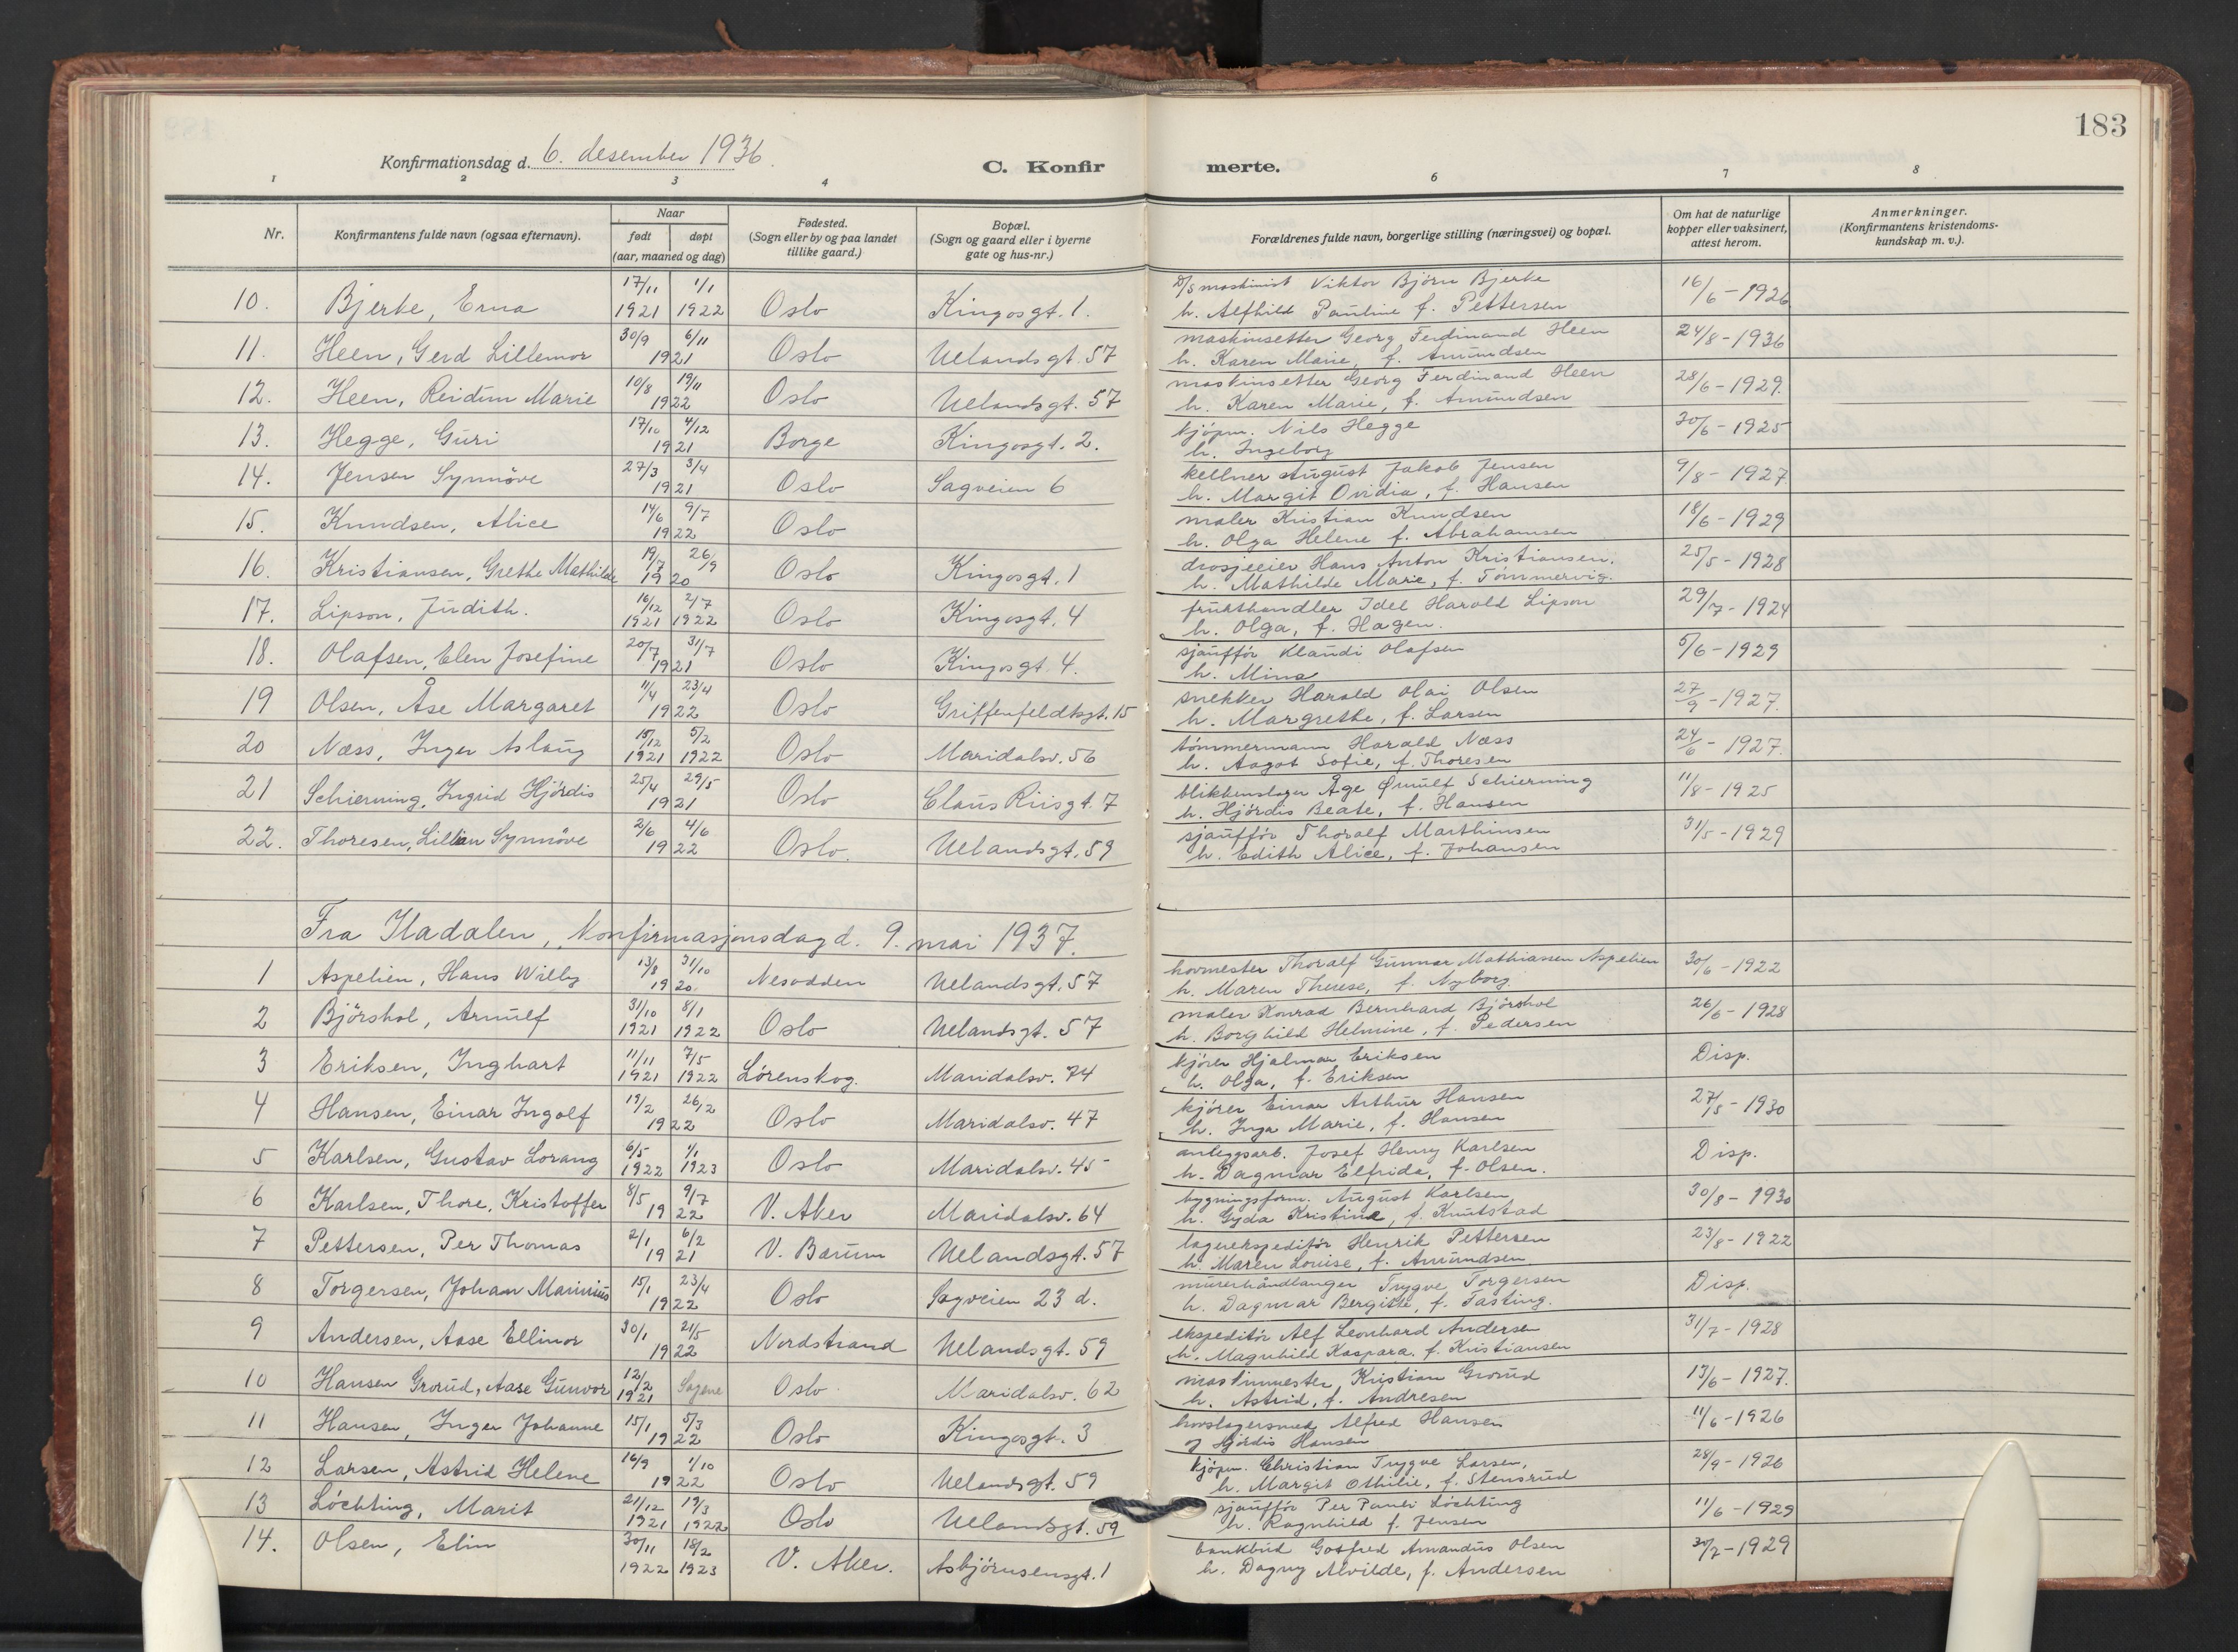 183
Konfirmationsdag d. 6. desember 1936.
C. Konfirmerte.
1 2 3 4 6 7 8
Nr. Konfirmantens fulde navn (ogsaa efternavn). Naar født døpt (aar, maaned og dag) Fødested. (Sogn eller by og paa landet tillike gaard.) Bopæl. (Sogn og gaard eller i byerne gate og hus-nr.) Forældrenes fulde navn, borgerlige stilling (næringsvei) og bopæl. Om hat de naturlige kopper eller vaksinert, attest herom. Anmerkninger. (Konfirmantens kristendoms-kundskap m. v.).
10. Bjerke, Erna 17/11 1921 1/1 1922 Oslo Kingosgt. 1. D/S maskinist Viktor Björn Bjerke 16/6-1926
h. Alfhild Pauline f. Pettersen
11. Heen, Gerd Lillemor 30/9 6/11 1921 Oslo Uelandsgt. 57 maskinsetter Georg Ferdinand Heen 24/8-1936
h. Karen Marie, f. Amundsen
12. Heen, Reidun Marie 10/8 19/11 1922 Oslo Uelandsgt. 57 maskinsetter Georg Ferdinand Heen 28/6-1929.
h. Karen Marie, f. Amundsen
13. Hegge, Guri 17/10 4/12 1921 Borge Kingosgt. 2. kjöpm. Nils Hegge 30/6-1925
h. Ingeborg
14. Jensen Synnöve 27/3 3/4 1921 Oslo Sagveien 6 kellner August Jakob Jensen 9/8-1927
h. Margit Ovidia, f. Hansen
15. Knudsen, Alice 14/6 9/7 1922 Oslo maler Kristian Knudsen 18/6-1929
h. Olga Helene f. Abrahamsen
16. Kristiansen, Grethe Mathilde 19/7 26/9 1920 Oslo Kingosgt. 1 drosjeeier Hans Anton Kristiansen. 25/5-1928
h. Mathilde Marie, f. Tömmervig.
17. Lipson, Judith. 16/12 1921 2/7 1922 Oslo Kingosgt. 4 frukthandler Idel Harald Lipson 29/7-1924
h. Olga, f. Hagen.
18. Olafsen, Elen Josefine 20/7 31/7 1921 Oslo Kingosgt. 4. sjaufför Klaudi Olafsen 5/6-1929
h. Mina
19 Olsen, Åse Margaret 11/4 23/4 1922 Oslo Griffenfeldtsgt. 15 snekker Harald Olai Olsen 27/9-1927.
h. Margrethe, f. Larsen
20 Næss, Inger Aslaug 15/12 1921 5/2 1922 Oslo Maridalsv. 56 tömmermann Harald Næss 24/6-1927.
h. Aagot Sofie, f. Thoresen
21 Schierning, Ingrid Hjördis 25/4 29/5 1921 Oslo Claus Riisgt. 7 blikkenslager Åge Ørnulf Schierning 11/8-1925
h. Hjördis Beate, f. Hansen
22. Thoresen, Lillian Synnöve 2/6 4/6 1922 Oslo. Uelandsgt. 59 sjaufför Thoralf Marthinsen 31/5-1929
h. Edith Alice, f. Johansen
Fra Iladalen, Konfirmasjonsdag d. 9. mai 1937.
1 Aspelien, Hans Willy 13/8 31/10 1920. Nesodden Uelandsgt. 57 hovmester Thoralf Gunnar Mathiassen Aspelien 30/6-1922
h. Maren Therese, f. Nyborg.
2 Björshol, Arnulf 31/10 1921 8/1 1922 Oslo Uelandsgt. 57 maler Konrad Bernhard Björshol 26/6-1928
h. Borghild Helmine, f. Pedersen
3 Eriksen, Inghart 11/11 1921 7/5 1922 Lörenskog. Maridalsv. 74 kjörer Hjalmar Eriksen Disp.
h. Olga, f. Eriksen
4 Hansen, Einar Ingolf 19/2 26/2 1922 Oslo Maridalsv. 47 kjörer Einar Arthur Hansen 27/5-1930
h. Inga Marie, f. Hansen
5 Karlsen, Gustav Lorang 6/5 1922 1/1 1923 Oslo Maridalsv. 45 anleggsarb. Josef Henry Karlsen Disp.
h. Dagmar Elfrida, f. Olsen.
6 Karlsen, Thore, Kristoffer 8/5 9/7 1922 V. Aker Maridalsv. 64 bygningsform. August Karlsen 30/8-1930
h. Gyda Kristine, f. Knutstad
7 Pettersen, Per Thomas 2/1 6/2 1921 V. Bærum Uelandsgt. 57 lagerekspeditör Henrik Pettersen 23/8-1922
h. Maren Louise, f. Amundsen.
8 Torgersen, Johan Marinius 15/1 23/4 1922 Oslo Sagveien 23 d. murerhåndlanger Trygve Torgersen Disp.
h. Dagmar Bergitte, f. Tasting.
9 Andersen, Aase Ellinor 30/1 21/5 1922 Nordstrand Uelandsgt. 59 ekspeditör Alf Leonhard Andersen 31/7-1928
h. Magnhild Kaspara. f. Kristiansen
10 Hansen Grorud, Aase Gunvor 12/2 1921 Sagene Oslo Maridalsv. 62 maskinmester, Kristian Grorud 13/6-1927.
h. Astrid, f. Andresen
11 Hansen, Inger Johanne 15/1 5/3 1922 Oslo Kingosgt. 3 hovslagersmed Alfred Hansen 11/6-1926
og Hjördis Hansen
12 Larsen, Astrid Helene 16/9 1/10 1922 Oslo Uelandsgt. 59 kjöpm. Christian Trygve Larsen, 28/9-1926
h. Margit Othilie, f. Stensrud
13 Löchting, Marit 21/12 1921 19/3 1922 Oslo Uelandsgt. 59 sjaufför Per Pauli Löchting 11/6-1929
h. Ragnhild f. Jensen
14. Olsen, Elin 30/11 1922 18/2 1923 V. Aker. Asbjörnsensgt. 1 bankbud Gotfred Amandus Olsen 30/7-1929
h. Dagny Alvilde, f. Andersen